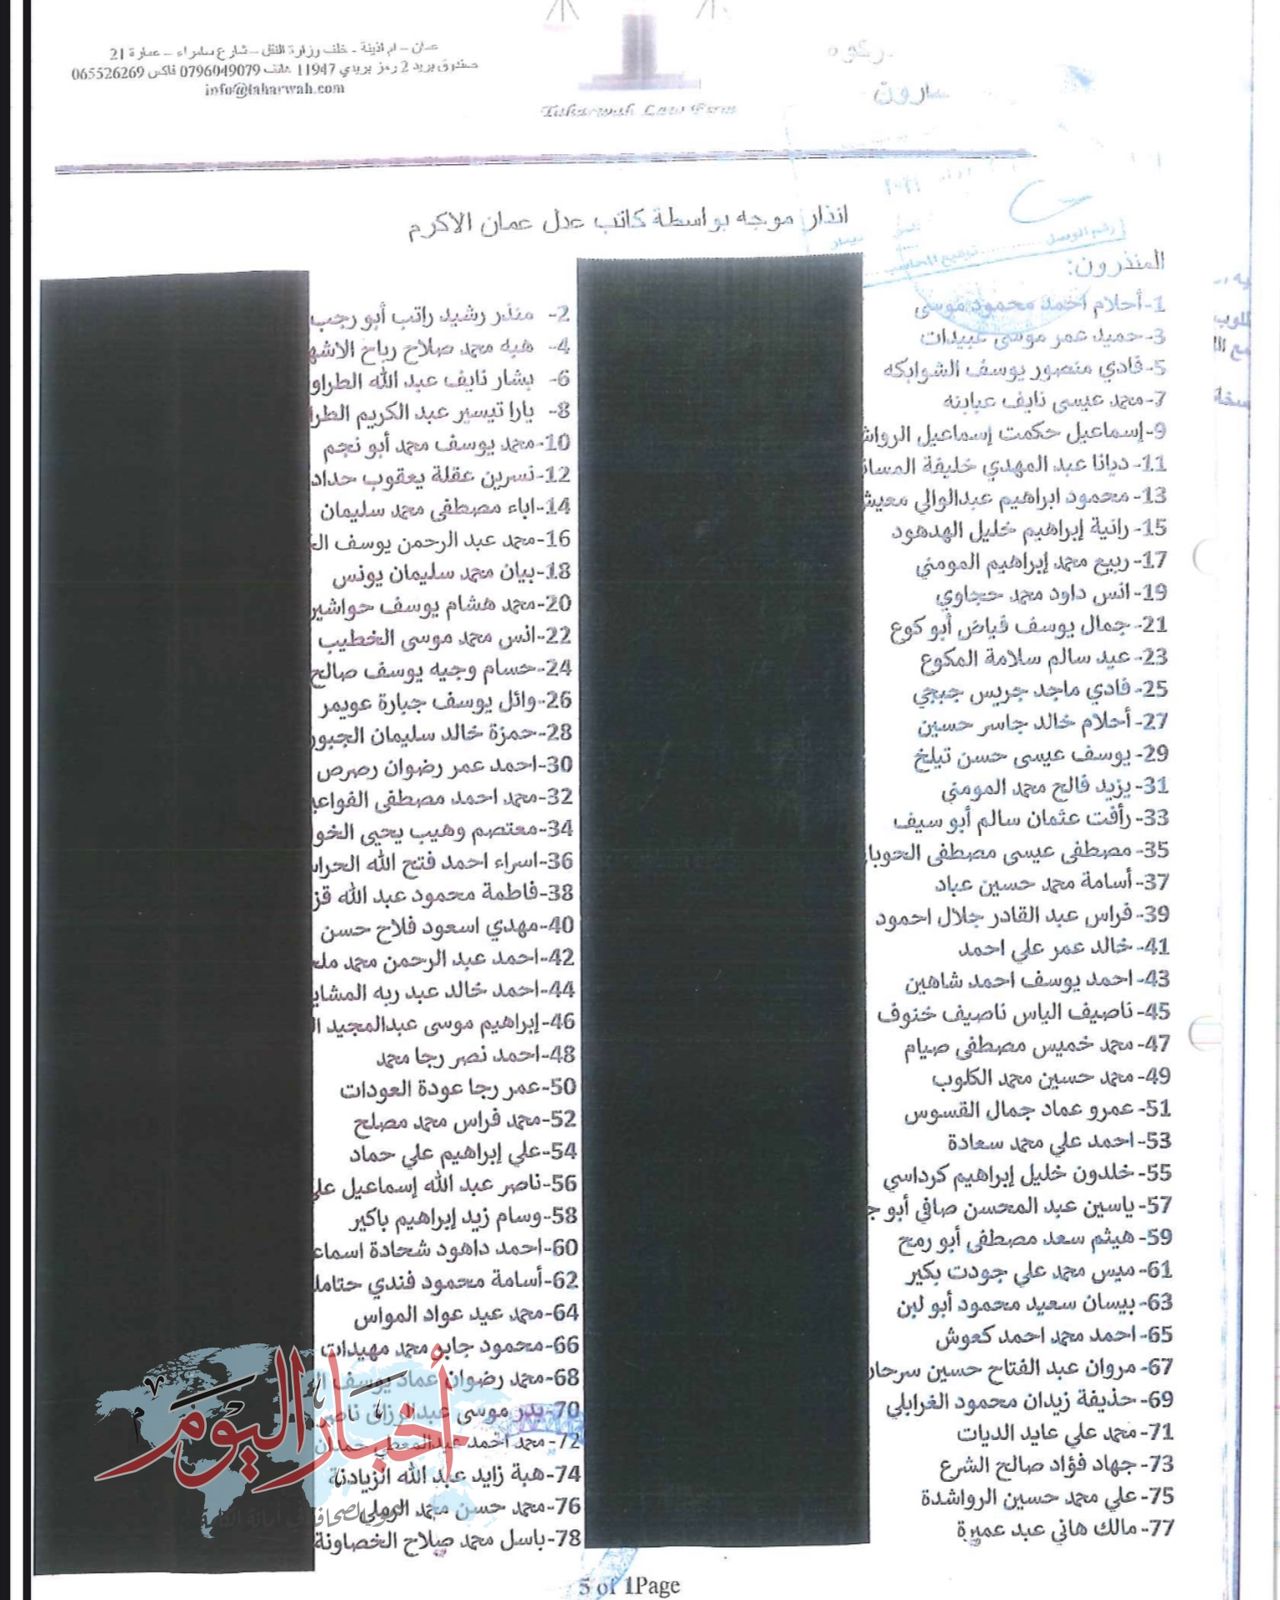 عمان – ام اذينة - خلف وزارة النقل – شارع سامراء – عمارة 21
صندوق بريد 2 رمز بريدي 11947 هاتف 0796049079 فاكس 065526269
info@taharwah.com
Taharwah Law Firm
سارون
انذار موجه بواسطة كاتب عدل عمان الاكرم
رقم الوصل
توقيع المحاسب
المنذرون:
1-أحلام احمد محمود موسى
2- منذر رشيد راتب أبو رجب
3- حميد عمر موسى عبيدات
4- هبه محمد صلاح رباح الاشه
5-فادي منصور يوسف الشوابكه
6- بشار نايف عبد الله الطراو
7-محمد عيسى نايف عبابنه
8- يارا تيسير عبد الكريم الطرا
9-إسماعيل حكمت إسماعيل الرواش
10-محمد يوسف محمد أبو نجم
11- ديانا عبد المهدي خليفة المسا
12-نسرين عقلة يعقوب حداد
13- محمود ابراهيم عبدالوالي معيش
14-اباء مصطفى محمد سليمان
15- رانية إبراهيم خليل الهدهود
16-محمد عبد الرحمن يوسف
17- ربيع محمد إبراهيم المومني
18-بيان محمد سليمان يونس
19- انس داود محمد حجاوي
20-محمد هشام يوسف حواشير
21- جمال يوسف فياض أبو كوع
22-انس محمد موسى الخطيب
23- عيد سالم سلامة المكوع
24-حسام وجيه يوسف صالح
25- فادي ماجد جريس جبجي
26-وائل يوسف جبارة عويمر
27- أحلام خالد جاسر حسين
28-حمزة خالد سليمان الجبور
29- يوسف عيسى حسن تيلخ
30-احمد عمر رضوان رصرص
31- يزيد فالح محمد المومني
32-محمد احمد مصطفى الفواعي
33- رأفت عثمان سالم أبو سيف
34-معتصم وهيب يحيى الخو
35- مصطفى عيسى مصطفى الحوبا
36-اسراء احمد فتح الله الحرا
37- أسامة محمد حسين عباد
38-فاطمة محمود عبد الله قز
39- فراس عبد القادر جلال احمود
40-مهدي اسعود فلاح حسن
41- خالد عمر علي احمد
42-احمد عبد الرحمن محمد ملح
43- احمد يوسف احمد شاهين
44-احمد خالد عبد ربه المشاي
45- ناصيف الياس ناصيف خنوف
46-إبراهيم موسى عبدالمجيد ال
47-محمد خميس مصطفى صيام
48-احمد نصر رجا محمد
49- محمد حسين محمد الكلوب
50-عمر رجا عودة العودات
51- عمرو عماد جمال القسوس
52-محمد فراس محمد مصلح
53- احمد علي محمد سعادة
54-علي إبراهيم علي حماد
55- خلدون خليل إبراهيم كرداسي
56-ناصر عبد الله إسماعيل علي
57- ياسين عبد المحسن صافي أبو ج
58-وسام زيد إبراهيم باكير
59- هيثم سعد مصطفى أبو رمح
60-احمد داهود شحادة اسماع
61- ميس محمد علي جودت بكير
62-أسامة محمود فندي حتامل
63- بيسان سعيد محمود أبو لبن
64-محمد عيد عواد المواس
65- احمد محمد احمد كعوش
66-محمود جابر محمد مهيدات
67- مروان عبد الفتاح حسين سرحان
68-محمد رضوان عماد يوسف
69- حذيفة زيدان محمود الغرابلي
70-بدر موسى عبدالرزاق ناصر
71- محمد علي عايد الديات
72-محمد احمد عبدالمعطي حمدان
73- جهاد فؤاد صالح الشرع
74-هبة زايد عبد الله الزيادنة
75- علي محمد حسين الرواشدة
76-محمد حسن محمد الرملي
77- مالك هاني عبد عميرة
78-باسل محمد صلاح الخصاونة
أخبار اليوم
5 of 1Page